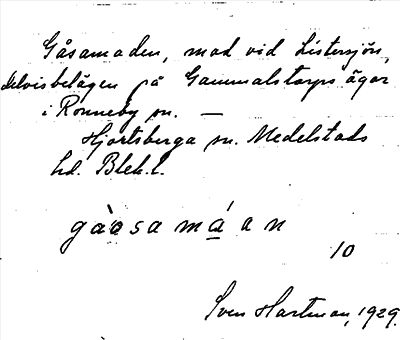 Gåsamaden, mad vid Listersjön,
delvis belägen på Gammalstorps ägor
i Ronneby sn. —
Hjortsberga sn. Medelstads
hd. Blek. l.
gàosa máan
10
Sven Hartman, 1929.